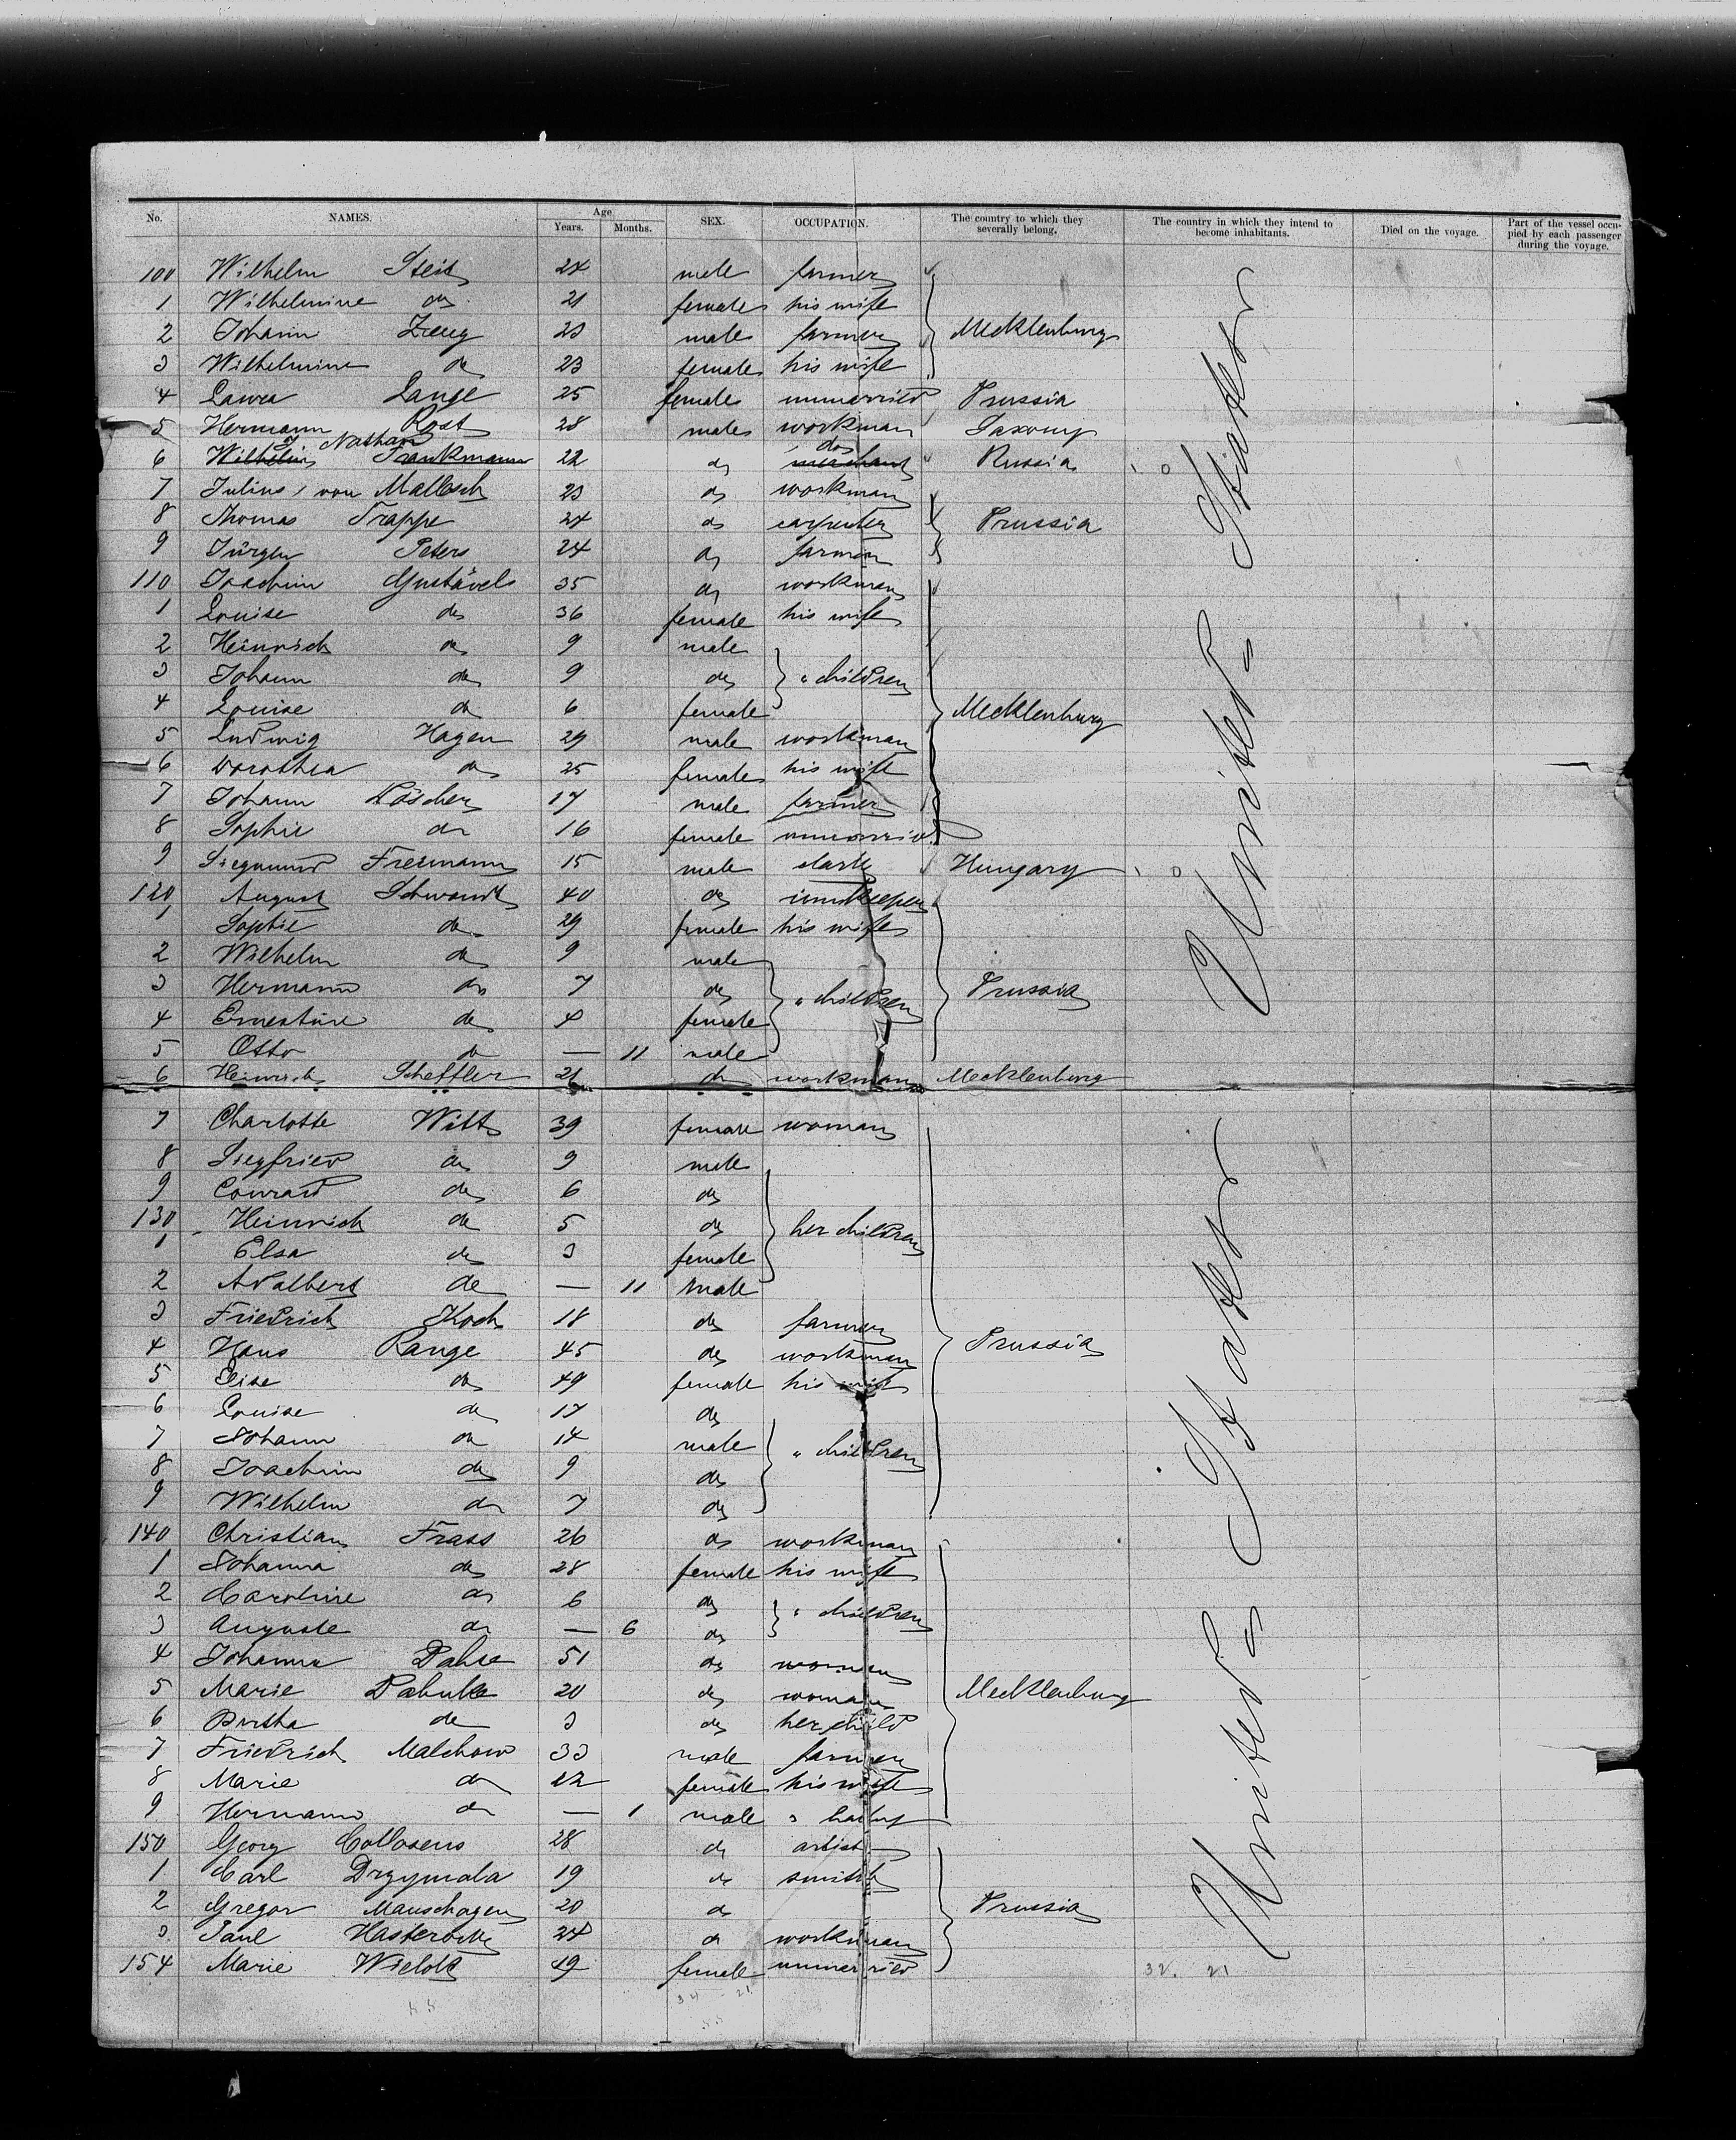 No. NAMES. Age Years. Months. SEX. OCCUPATION. The country to which they severally belong. The country in which they intend to become inhabitants. Died on the voyage. Part of the vessel occupied by each passenger during the voyage.
100 Wilhelm 24 male farmer
1 Wilhelmine do 21 female his wife
2 Johann 23 male farmer Mecklenburg
3 Wilhelmine do 23 female his wife
4 Laura Lange 25 female unmarried Prussia
5 Hermann Rost 28 male workman Saxony
J. Nathan do
6 Wilhelm Frankmann 22 do merchant Russia
7 Julius von Mallesch 23 do workman
8 Thomas Trappe 24 do carpenter Prussia
9 Jürgen Peters 24 do farmer
110 Joachim Gustävel 35 do workman
1 Louise do 36 female his wife
2 Heinrich do 9 male
3 Johann do 9 do " children
4 Louise do 6 female Mecklenburg
5 Ludwig Hagen 29 male workman
6 Dorothea do 25 female his wife
7 Johann Löscher 17 male farmer
8 Sophie do 16 female unmarried
9 Siegmund Freimann 15 male clark Hungary
120 August Schwandt 40 do innkeeper
1 Sophie do 29 female his wife
2 Wilhelm do 9 male
3 Hermann do 7 do " children Prussia
4 Ernestine do 4 female
5 Otto do — 11 male
6 Heinrich Scheffler 21 do workman Mecklenburg
7 Charlotte Witt 39 female woman
8 Siegfried do 9 male
9 Conrad do 6 do
130 Heinrich do 5 do her children
1 Elsa do 3 female
2 Adalbert do — 11 male
3 Friedrich Koch 18 do farmer
4 Hans Range 45 do workman Prussia
5 Elise do 49 female his wife
6 Louise do 17 do
7 Johann do 14 male " children
8 Joachim do 9 do
9 Wilhelm do 7 do
140 Christian Frass 26 do workman
1 Johanna do 28 female his wife
2 Caroline do 6 do " children
3 Auguste do — 6 do
4 Johanna Dahse 51 do woman
5 Marie Pahnke 20 do woman Mecklenburg
6 Bertha do 3 do her child
7 Friedrich Malchow 33 male farmer
8 Marie do 22 female his wife
9 Hermann do — 1 male " baby
150 Georg 28 do artist
1 Carl Drzymala 19 do smith
2 Gregor Manschagen 20 do Prussia
3 Paul 24 do workman
154 Marie 19 female unmarried
United States
United States
32. 21